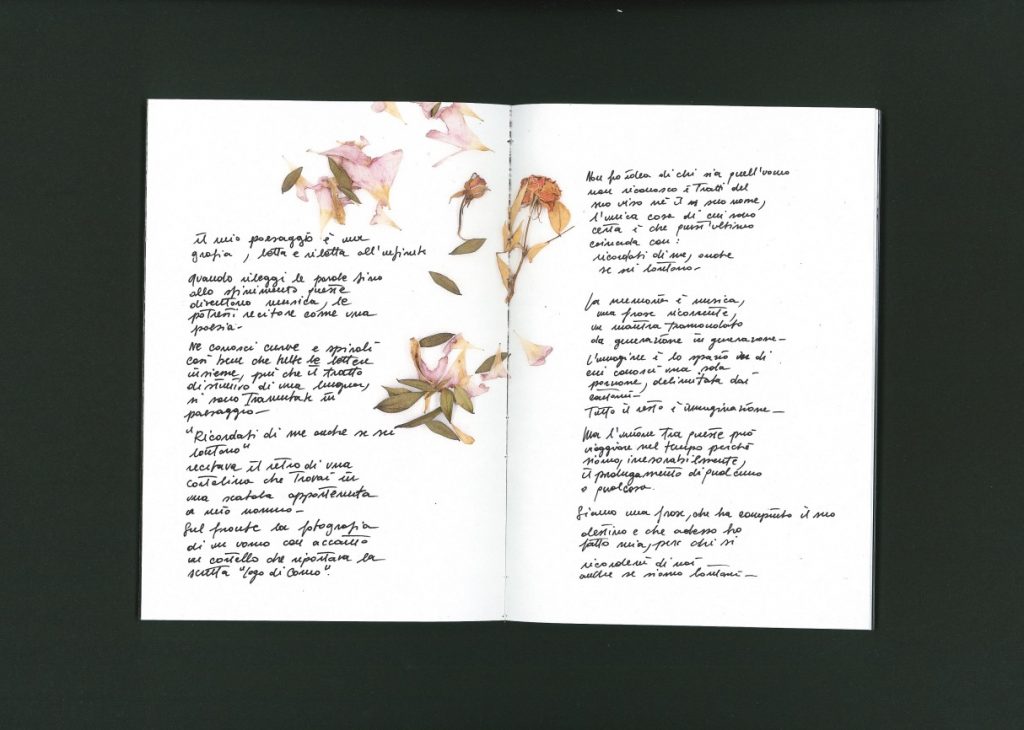 il mio paesaggio è una
grafia, letta e riletta all'infinito
Quando rileggi le parole fino
allo sfinimento queste
diventano musica, le
potresti recitare come una
poesia-
Ne conosci curve e spirali
così bene che tutte le lettere
insieme, più che il tratto
distintivo di una lingua,
si sono tramutate in
paesaggio-
"Ricordati di me anche se sei
lontano"
recitava il retro di una
cartolina che trovai in
una scatola appartenuta
a mio nonno-
Sul fronte la fotografia
di un uomo con accanto
un cartello che riportava la
scritta "lago di Como".
Non ho idea di chi sia quell'uomo
non riconosco i tratti del
suo viso né il suo nome,
l'unica cosa di cui sono
certa è che quest'ultimo
coincida con:
ricordati di me, anche
se sei lontano-
La memoria è musica,
una frase ricorrente,
un mantra tramandato
da generazione in generazione-
L'immagine è lo spazio di
cui conosci una sola
porzione, delimitata dai
contorni-
Tutto il resto è immaginazione-
Ma l'unione tra queste può
viaggiare nel tempo perché
siamo, inesorabilmente,
il prolungamento di qualcuno
o qualcosa.
Siamo una frase, che ha compiuto il suo
destino e che adesso ho
fatto mia, per chi si
ricorderà di noi
anche se siamo lontani-